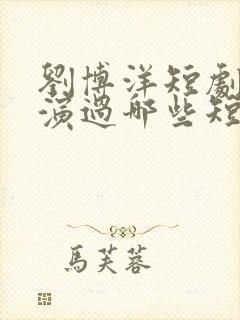 劉博洋短劇
演過哪些短
馬芙蓉